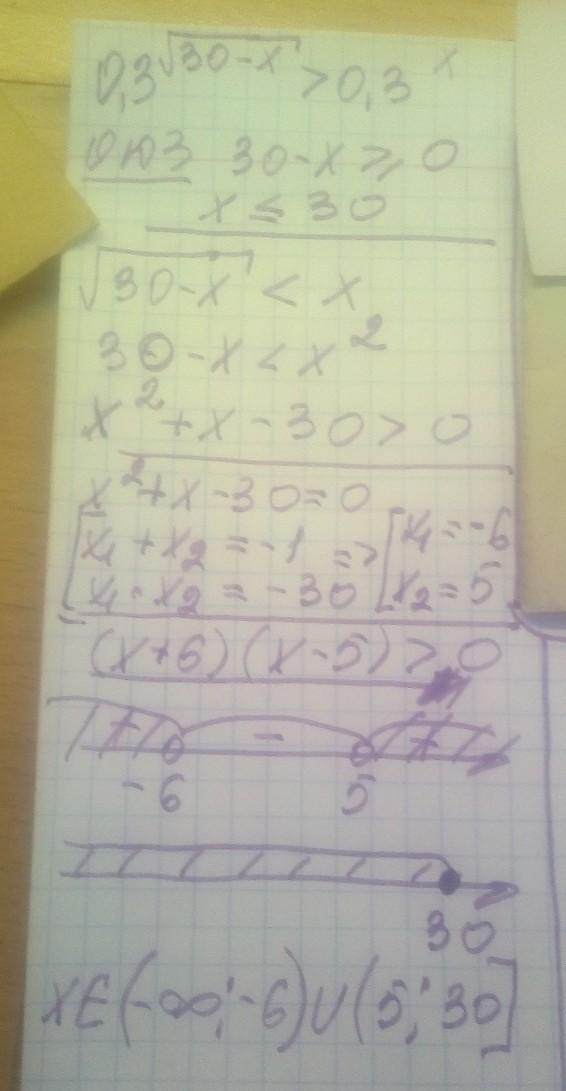 0,3^√(30-x) > 0,3^x
ОДЗ 30-x ≥ 0
x ≤ 30
√(30-x) < x
30-x < x²
x²+x-30 > 0
x²+x-30=0
[x₁+x₂=-1 => [x₁=-6
[x₁·x₂=-30 [x₂=5
(x+6)(x-5) > 0
+ - +
-6 5
30
XЄ(-∞;-6)U(5;30]